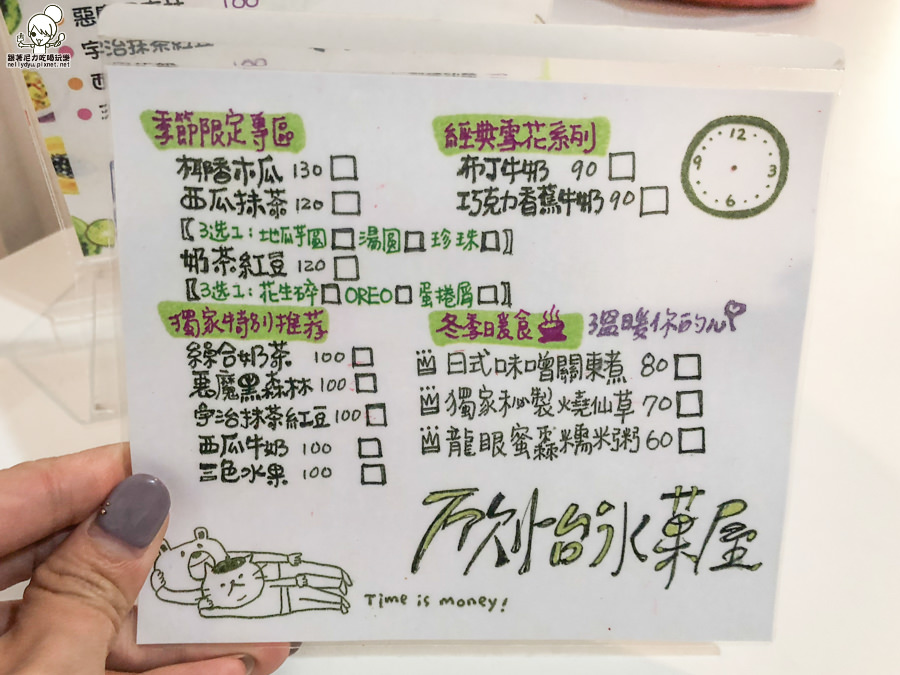 跟著尼力吃喝玩樂
nellydyu.pixnet.net
100
宇治抹茶紅
季節限定專區
椰香木瓜 130
西瓜抹茶 120
〖3选1：地瓜芋圓 湯圓 珍珠〗
奶茶紅豆 120
〖3选1：花生碎 OREO 蛋捲屑〗
獨家特別推荐
綜合奶茶 100
惡魔黑森林 100
宇治抹茶紅豆 100
西瓜牛奶 100
三色水果 100
經典雪花系列
布丁牛奶 90
巧克力香蕉牛奶 90
12
9 3
6
冬季暖食 溫暖你的心
日式味噌關東煮 80
獨家秘製燒仙草 70
龍眼蜜桑糯米粥 60
冰菓屋
Time is money!